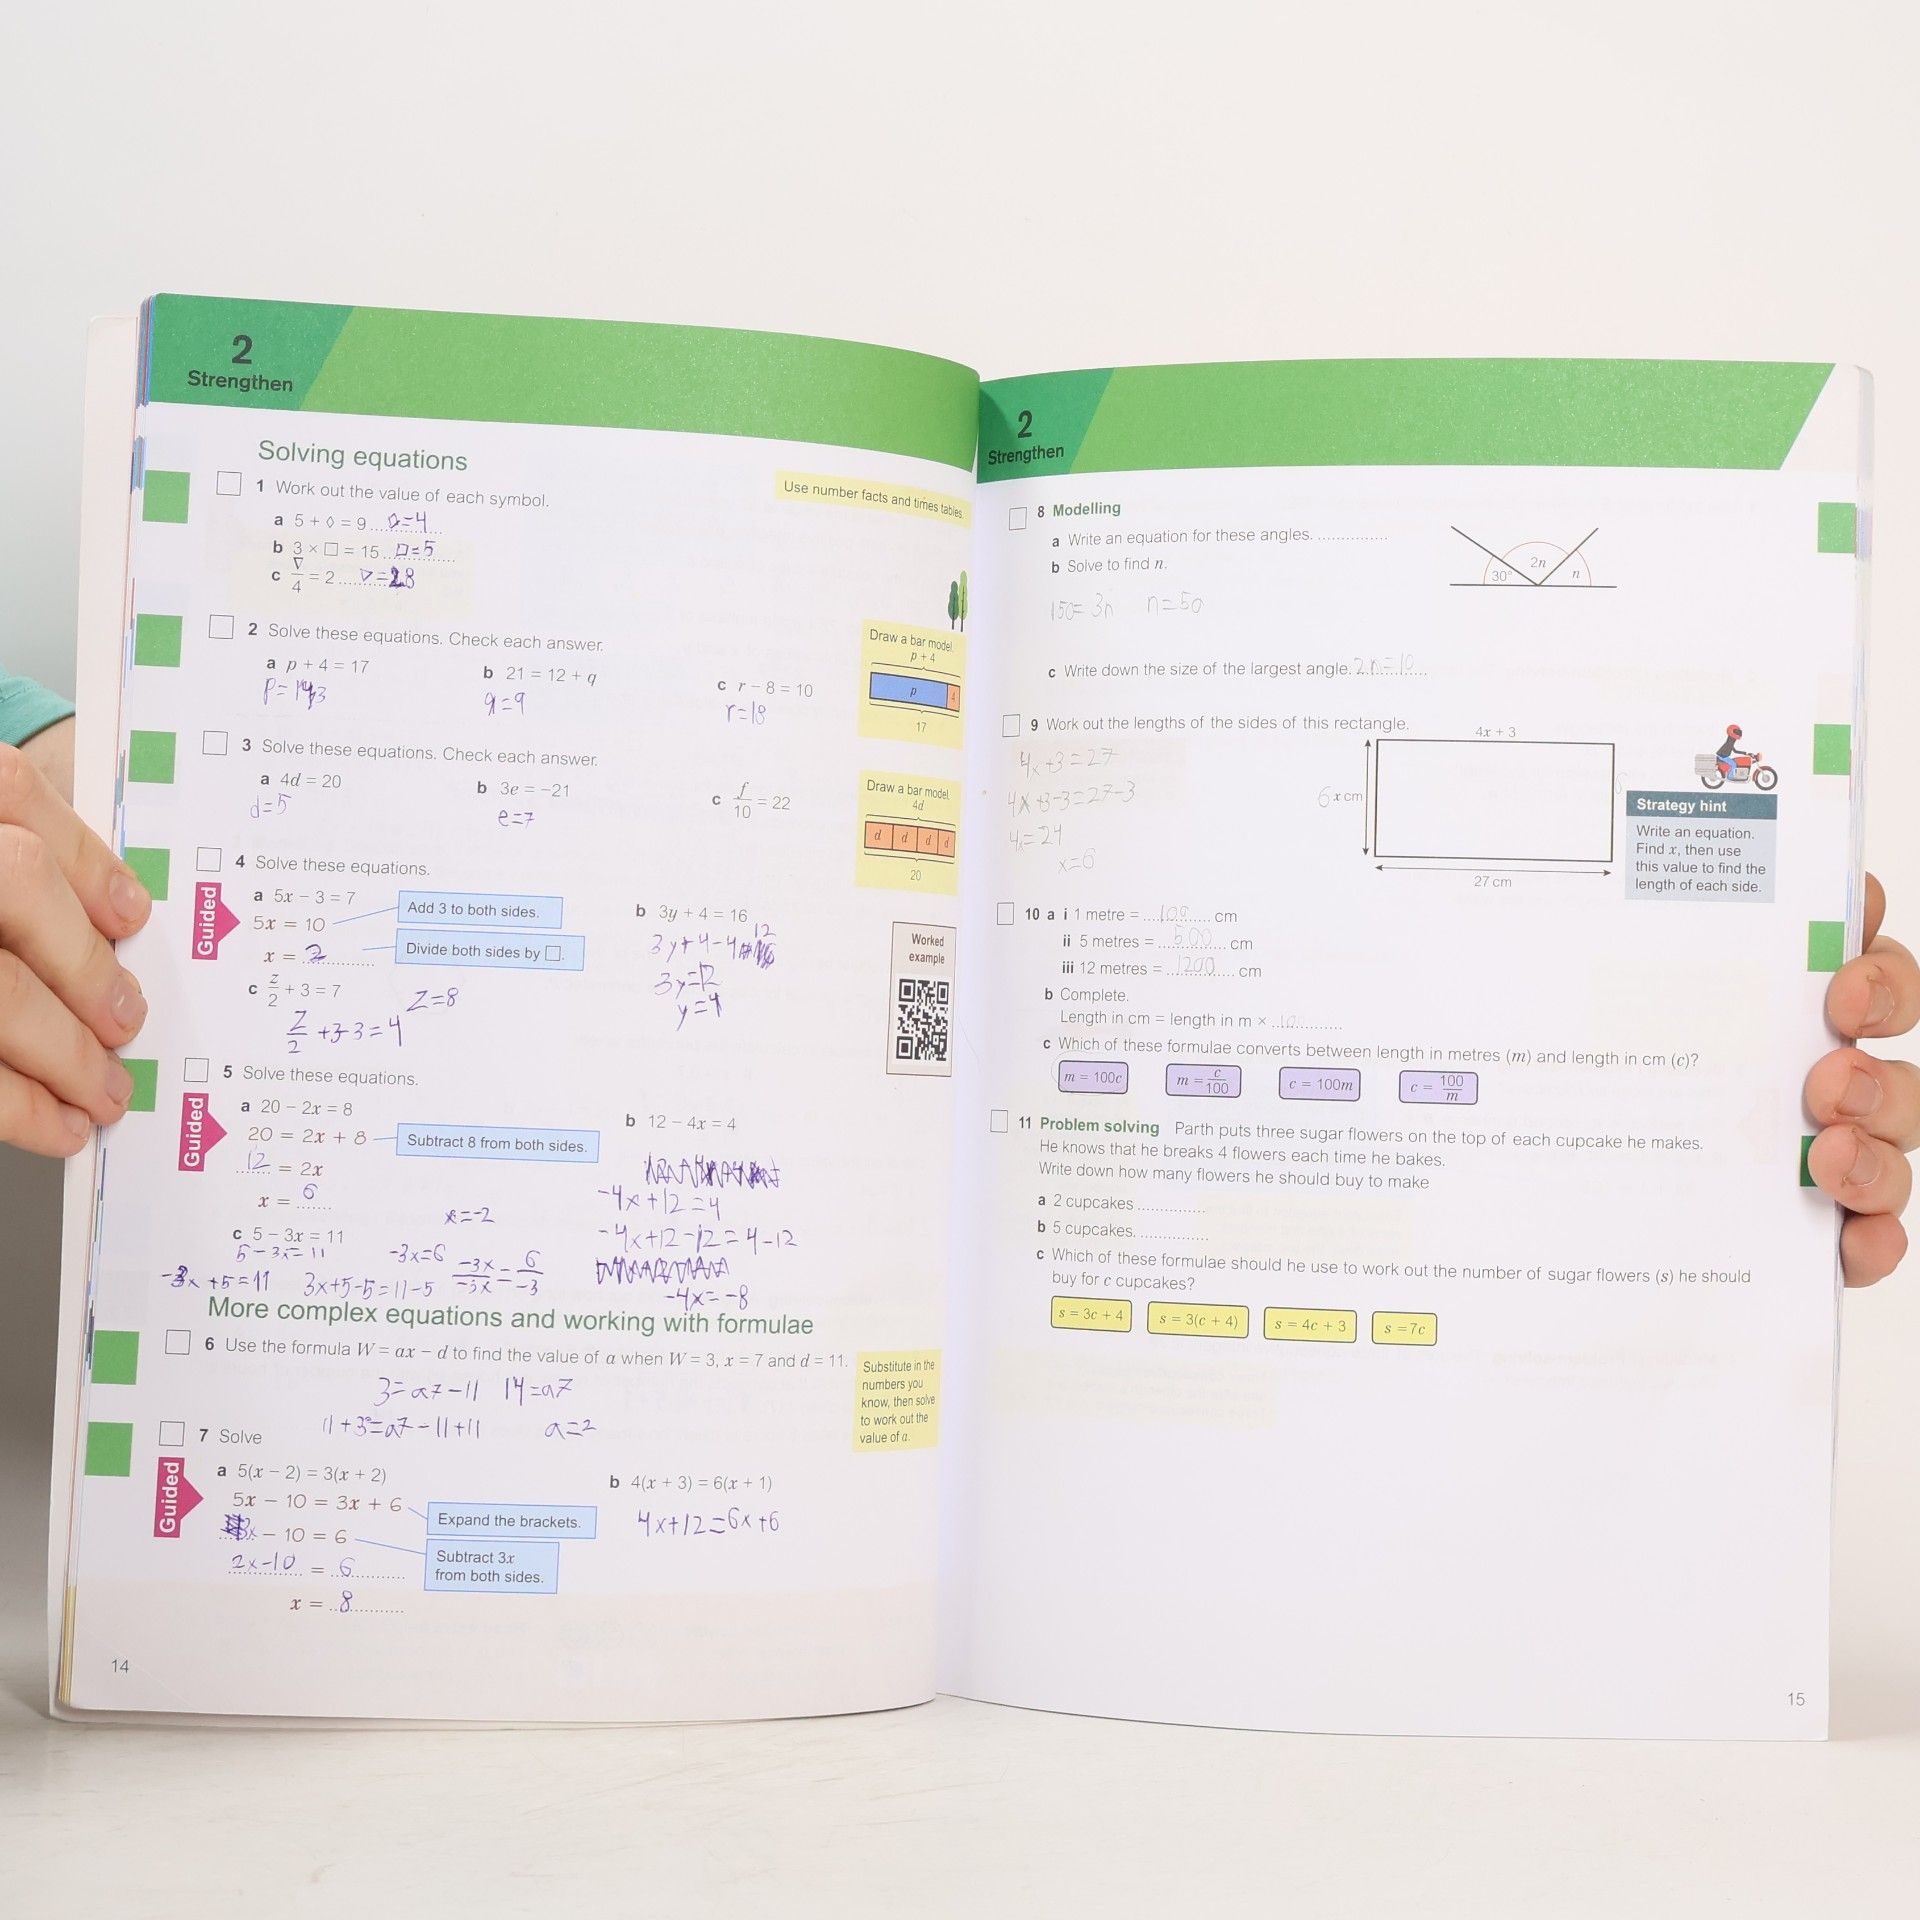 2
Strengthen
Solving equations
1 Work out the value of each symbol.
Use number facts and times tables.
a 5 + ◊ = 9 ◊=4
b 3 × □ = 15 □=5
c ∇/4 = 2 ∇=8
2 Solve these equations. Check each answer.
a p + 4 = 17
p=13
b 21 = 12 + q
q=9
c r − 8 = 10
r=18
Draw a bar model.
p + 4
p 4
17
3 Solve these equations. Check each answer.
a 4d = 20
d=5
b 3e = −21
e=7
c f/10 = 22
Draw a bar model.
4d
d d d d
20
4 Solve these equations.
Guided
a 5x − 3 = 7
5x = 10
Add 3 to both sides.
x = 2
Divide both sides by □.
b 3y + 4 = 16
3y+4-4 12
3y=12
y=4
c z/2 + 3 = 7
z=8
z/2 +3-3=4
Worked
example
5 Solve these equations.
Guided
a 20 − 2x = 8
20 = 2x + 8
Subtract 8 from both sides.
12 = 2x
x = 6
b 12 − 4x = 4
-4x+12=4
-4x+12-12=4-12
-4x=-8
c 5 − 3x = 11
x=-2
5-3x=11
-3x=6
-3x/-3x = 6/-3
-3x+5=11
3x+5-5=11-5
More complex equations and working with formulae
6 Use the formula W = ax − d to find the value of a when W = 3, x = 7 and d = 11.
3=a7-11 14=a7
11+3=a7-11+11 a=2
Substitute in the
numbers you
know, then solve
to work out the
value of a.
7 Solve
Guided
a 5(x − 2) = 3(x + 2)
5x − 10 = 3x + 6
Expand the brackets.
x − 10 = 6
Subtract 3x
from both sides.
2x-10 = 6
x = 8
b 4(x + 3) = 6(x + 1)
4x+12=6x+6
14
2
Strengthen
8 Modelling
a Write an equation for these angles.
b Solve to find n.
150=3n n=50
30° 2n n
c Write down the size of the largest angle. 2n=10
9 Work out the lengths of the sides of this rectangle.
4x+3=27
4x+3-3=27-3
4x=24
x=6
4x + 3
6 x cm
27 cm
Strategy hint
Write an equation.
Find x, then use
this value to find the
length of each side.
10 a i 1 metre = 100 cm
ii 5 metres = 500 cm
iii 12 metres = 1200 cm
b Complete.
Length in cm = length in m × 100
c Which of these formulae converts between length in metres (m) and length in cm (c)?
m = 100c m = c/100 c = 100m c = 100/m
11 Problem solving Parth puts three sugar flowers on the top of each cupcake he makes.
He knows that he breaks 4 flowers each time he bakes.
Write down how many flowers he should buy to make
a 2 cupcakes
b 5 cupcakes.
c Which of these formulae should he use to work out the number of sugar flowers (s) he should
buy for c cupcakes?
s = 3c + 4 s = 3(c + 4) s = 4c + 3 s = 7c
15